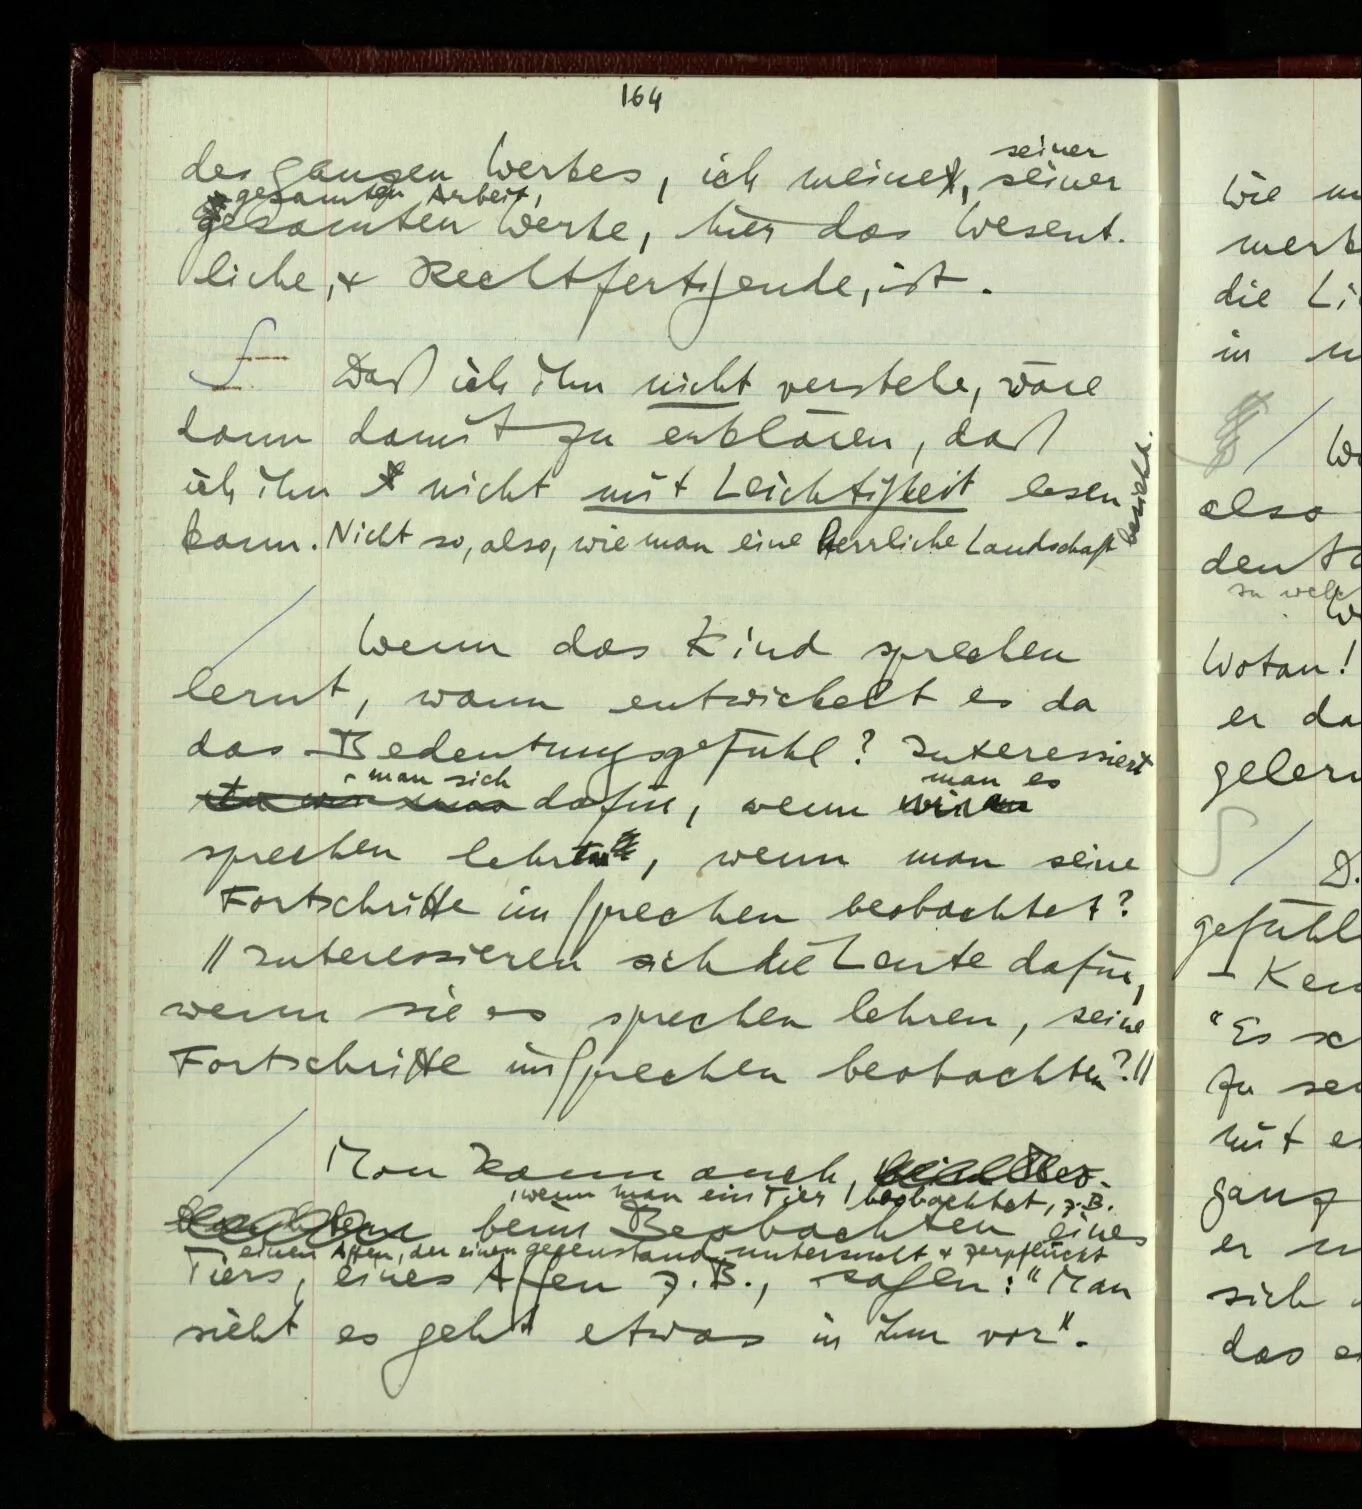 164
des ganzen Werkes, ich meine, seiner seiner
gesamten Arbeit,
gesamten Werke, hier das Wesent.
liche, & Rechtfertigende, ist.
Daß ich ihn nicht verstehe, wäre
dann damit zu erklären, daß
ich ihn nicht mit Leichtigkeit lesen
kann. Nicht so, also, wie man eine herrliche Landschaft besieht.
Wenn das Kind sprechen
lernt, wann entwickelt es da
das Bedeutungsgefühl? Interessiert
man sich man es
dafür, wenn wir
sprechen lehrt, wenn man seine
Fortschritte im Sprechen beobachtet?
// Interessieren sich die Leute dafür,
wenn sie es sprechen lehren, seine
Fortschritte im Sprechen beobachten?//
Man kann auch,
, wenn man ein Tier beobachtet, z.B.
beim Beobachten eines
einen Affen, der einen Gegenstand untersucht & zerpflückt
Tiers, eines Affen z.B., sagen: "Man
sieht es geht etwas in ihm vor".
Wie
die
in
also
zu
Wotan!
er da
"Es
zu
mit
ganz
er
sich
das